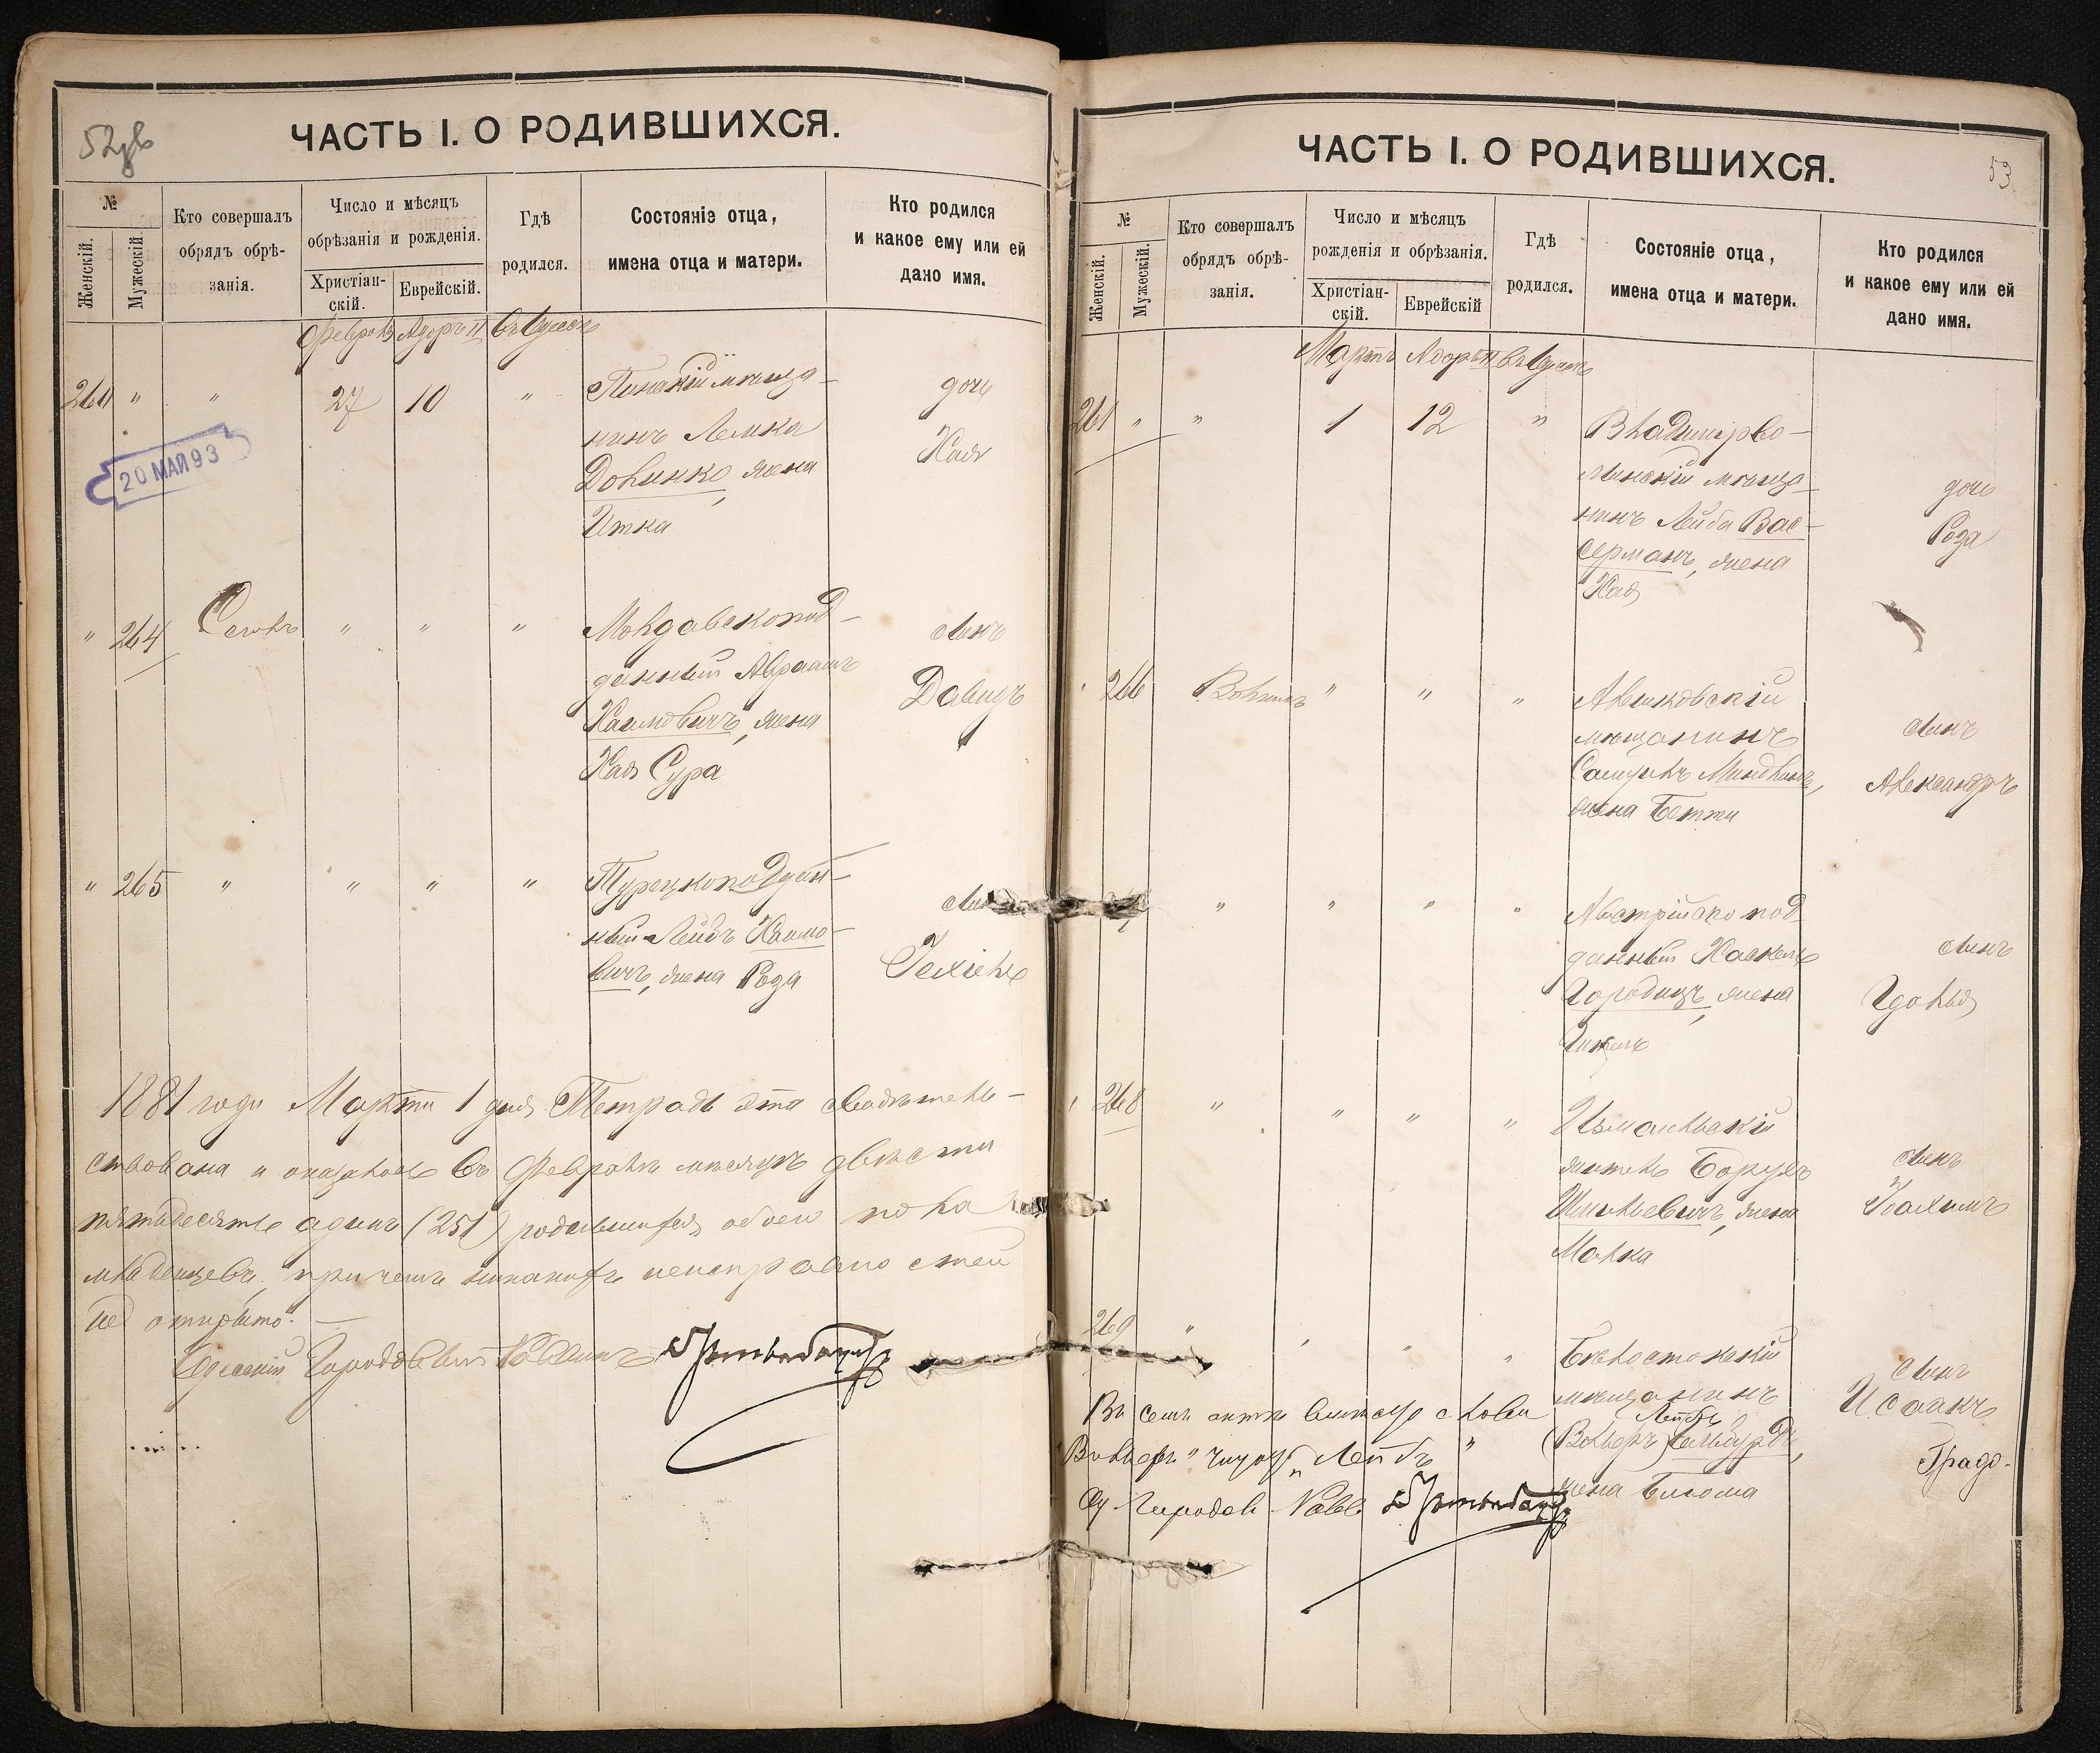 52об
ЧАСТЬ I. О РОДИВШИХСЯ.
№
Женскій.
Мужескій.
Кто совершалъ
обрядъ обрѣ-
занія.
Число и мѣсяцъ
обрѣзанія и рожденія.
Христіан-
скій.
Еврейскій.
Гдѣ
родился.
Состояніе отца,
имена отца и матери.
Кто родился
и какое ему или ей
дано имя.
Февраль Адоръ II въ Одессѣ
260 " " 27 10 "
Пинскій мѣща-
нинъ Лемка
Долинко, жена
Итка
дочь
Хая
20 МАЯ 93
" 264 " " "
Молдавскопод-
данный Авраамъ
Хаимовичъ, жена
Хая Сура
сынъ
Давидъ
" 265 " " " "
Турецкоподдан-
ный Лейбъ Хаимо-
вичъ, жена Роза
Іехіель
1881 года Марта 1 дня Тетрадь эта свидѣтель-
ствована и оказалось въ Февралѣ мѣсяцѣ двѣсти
пятьдесятъ одинъ (251) родившихся обоего пола
младенцевъ, при чемъ никакихъ неисправностей
не открыто. —
Одесскій Городовый Раввинъ
ЧАСТЬ I. О РОДИВШИХСЯ.
53
№
Женскій.
Мужескій.
Кто совершалъ
обрядъ обрѣ-
занія.
Число и мѣсяцъ
рожденія и обрѣзанія.
Христіан-
скій.
Еврейскій
Гдѣ
родился.
Состояніе отца,
имена отца и матери.
Кто родился
и какое ему или ей
дано имя.
Мартъ Адоръ II въ Одессѣ
261 " " 1 12 "
Владимірво-
лынскій мѣща-
нинъ Лейба Вас-
серманъ, жена
Хая
дочь
Роза
" 266 " " "
мѣщанинъ
жена Бетти
сынъ
Александръ
" " " "
Австрійскопод
данный Хаскель
Городищъ, жена
сынъ
Гдалья
" 268 " " " "
Измаильскій
житель Борухъ
Шмульевичъ, жена
Малка
сынъ
Нахимъ
269 " " " "
Бѣлостокскій
мѣщанинъ
Лейбъ
жена Блюма
сынъ
Исаакъ
Градо-
Въ семъ актѣ вмѣсто слова
"Вольфъ" читать „Лейбъ"
Од. Городов. Равв.